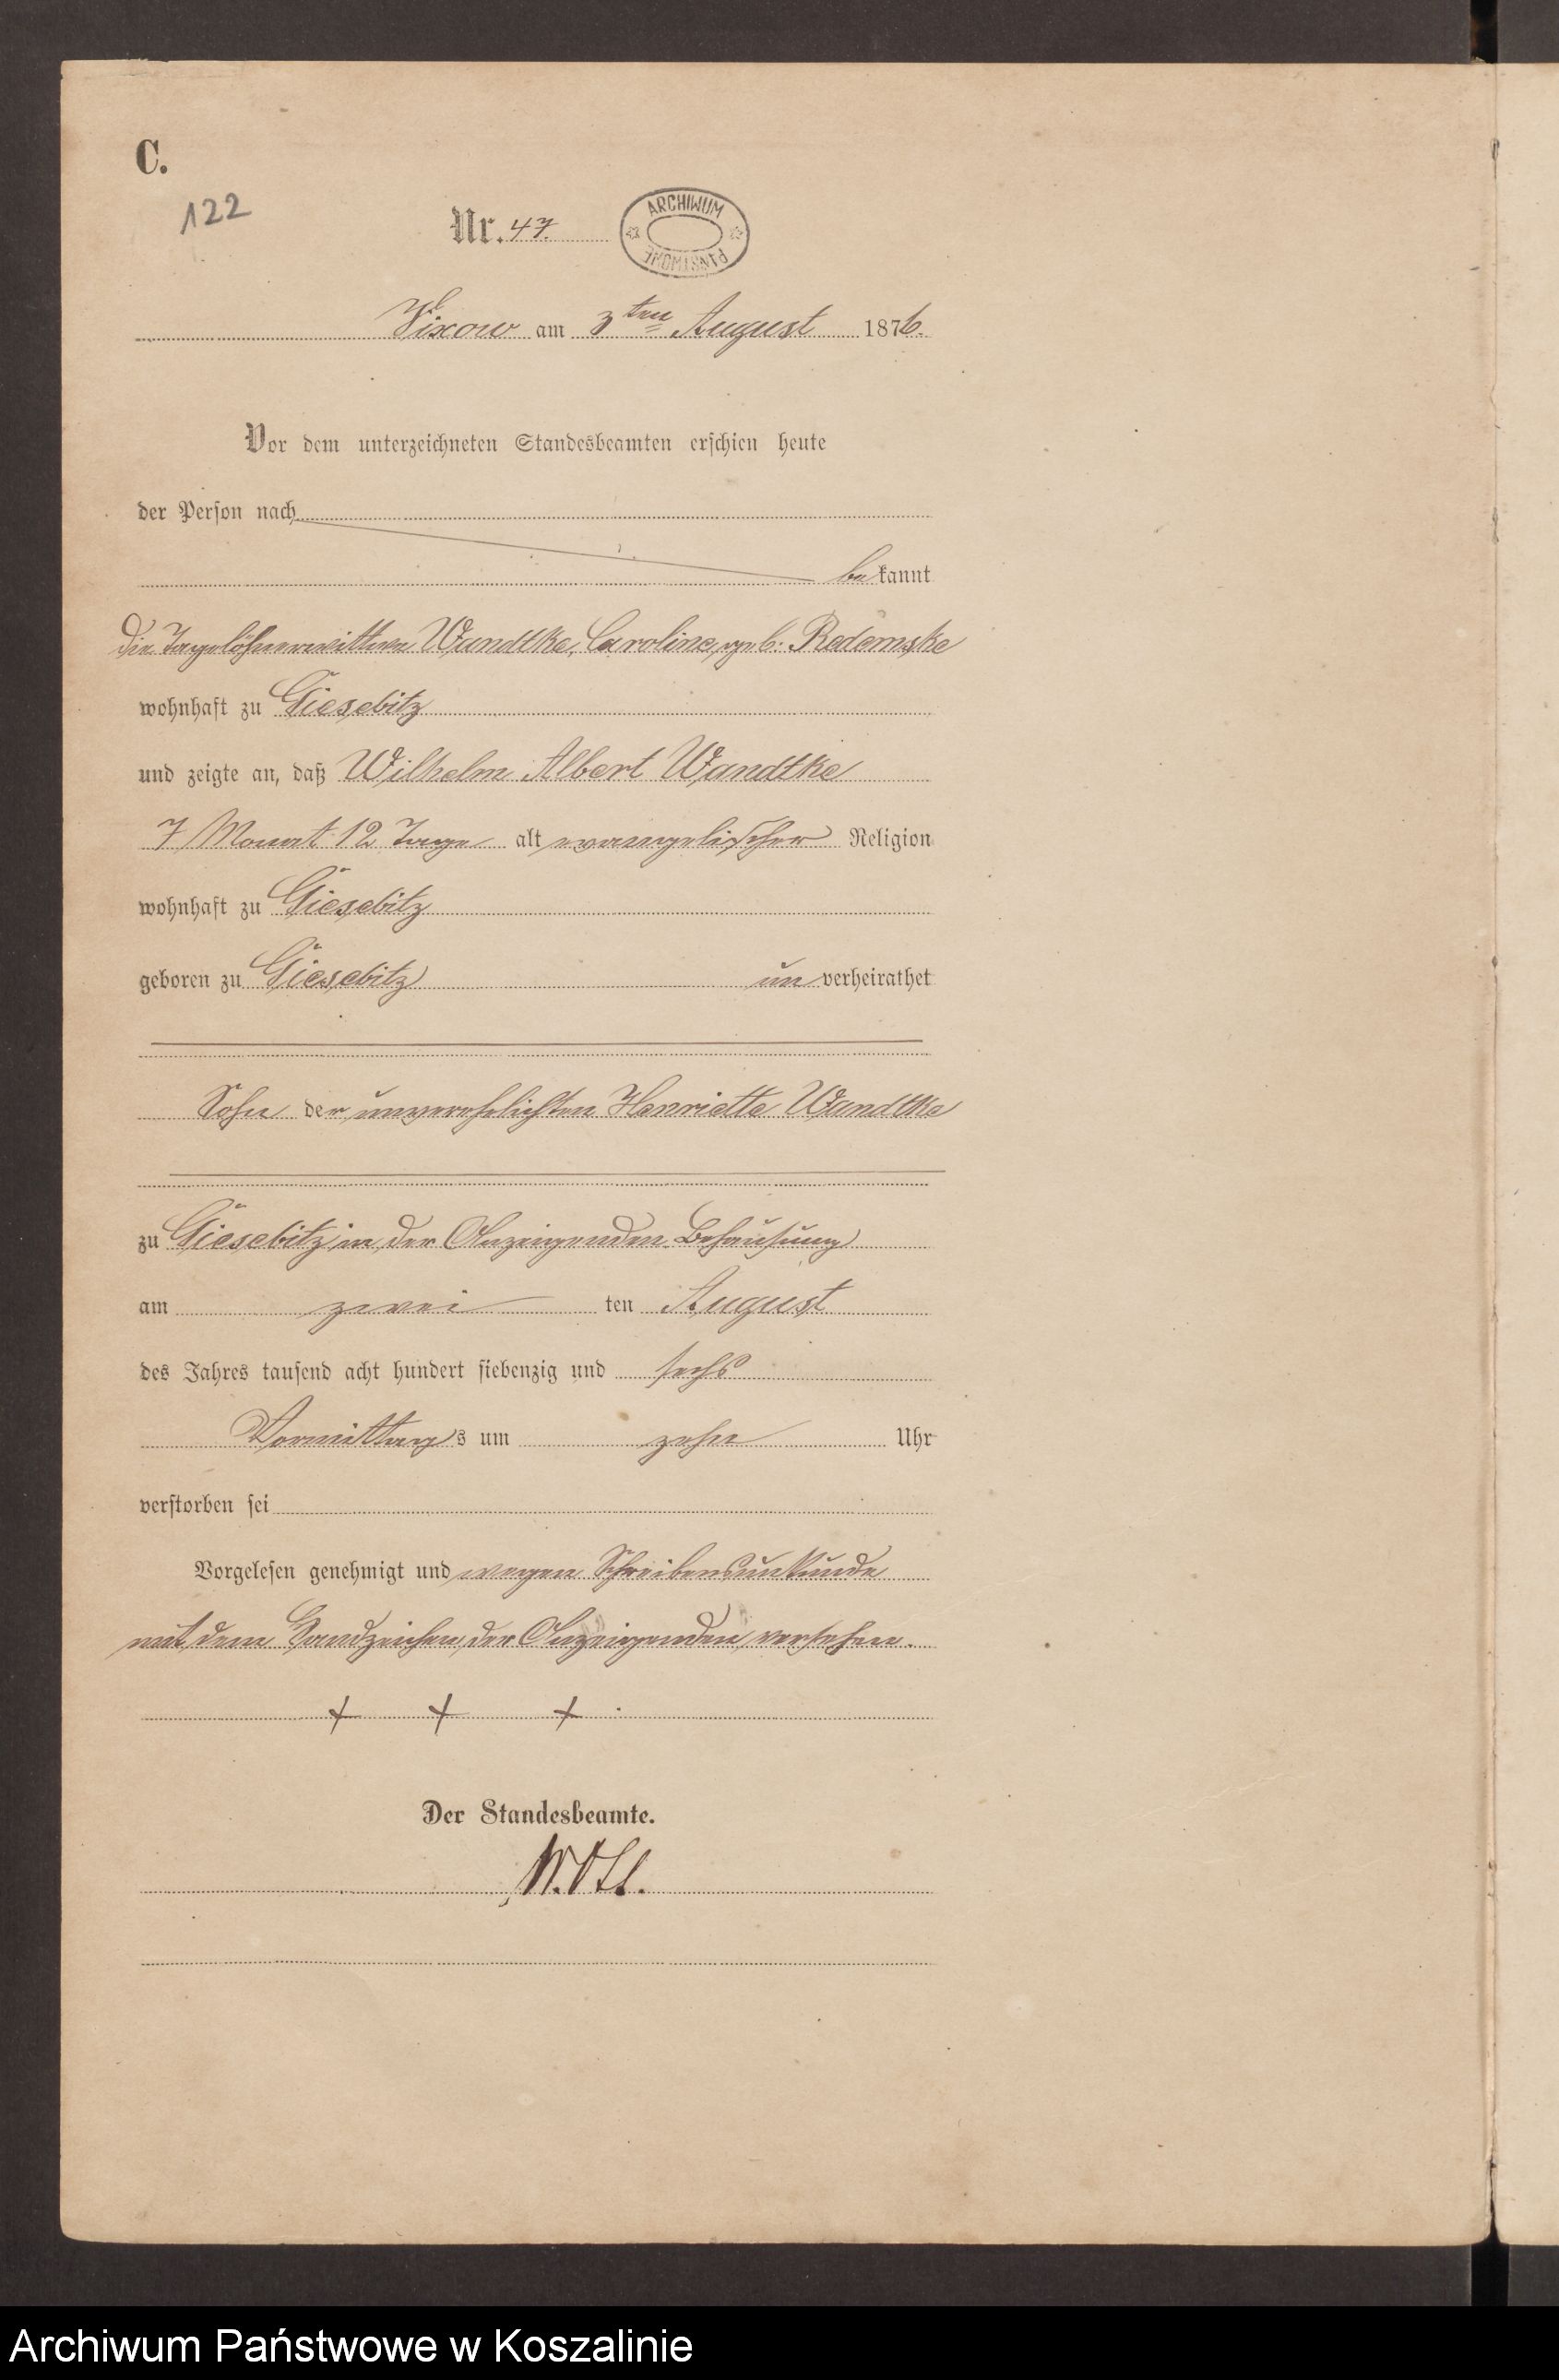 C.
122
Nr. 47.
ARCHIWUM
PAŃSTWOWE
Vixow am 3ten August 1876.
Vor dem unterzeichneten Standesbeamten erschien heute
der Person nach
bekannt
die Tagelöhnerwittwe Wandtke, Caroline, geb: Redemske
wohnhaft zu Giesebitz
und zeigte an, daß Wilhelm Albert Wandtke
7 Monat 12 Tage alt evangelischer Religion
wohnhaft zu Giesebitz
geboren zu Giesebitz unverheirathet
Sohn der unverehelichten Henriette Wandtke
zu Giesebitz in der Anzeigenden Behausung
am zwei ten August
des Jahres tausend acht hundert siebenzig und sechs
Vormittags um zehn Uhr
verstorben sei
Vorgelesen genehmigt und wegen Schreibensunkunde
mit dem Handzeichen der Anzeigenden versehen.
+ + +
Der Standesbeamte.
Archiwum Państwowe w Koszalinie